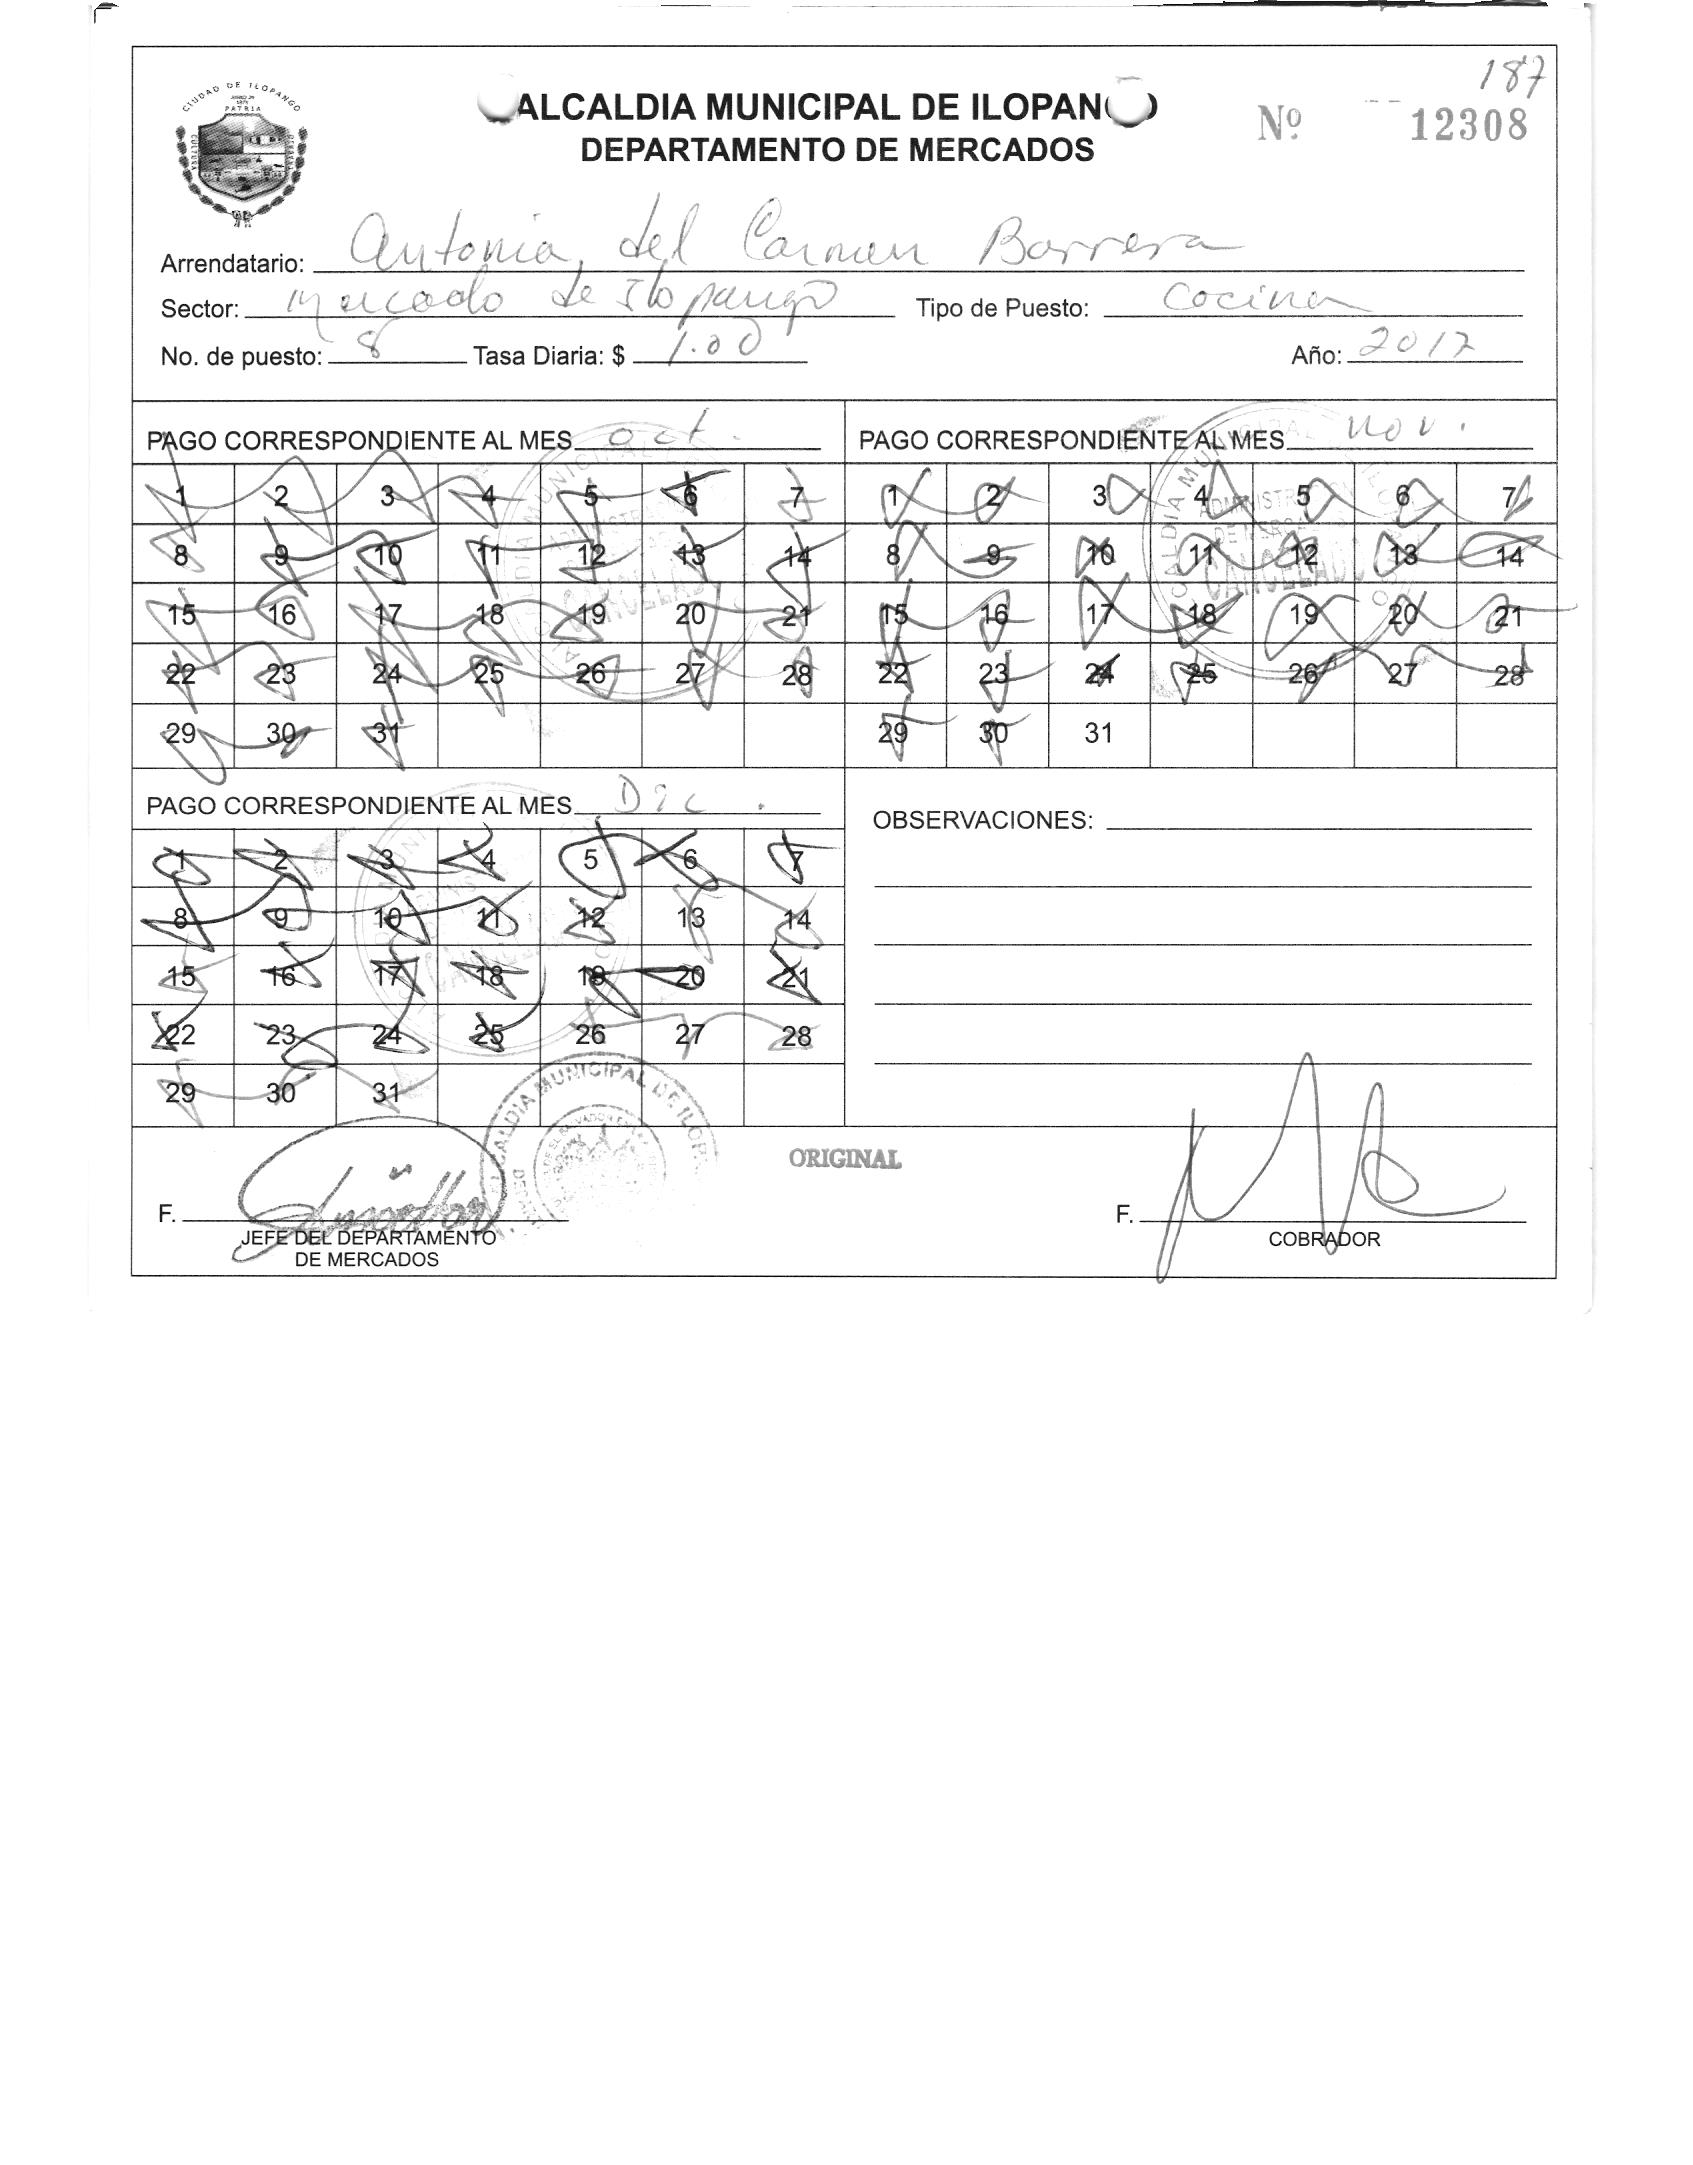 187
CIUDAD DE ILOPANGO
PATRIA
ALCALDIA MUNICIPAL DE ILOPANGO
Nº 12308
DEPARTAMENTO DE MERCADOS
Arrendatario: Antonia del Carmen Barrera
Sector: Mercado de Ilopango Tipo de Puesto: Cocina
No. de puesto: 8 Tasa Diaria: $ 1.00 Año: 2017
PAGO CORRESPONDIENTE AL MES oct.
1 2 3 4 5 6 7
8 9 10 11 12 13 14
15 16 17 18 19 20 21
22 23 24 25 26 27 28
29 30 31
CANCELADO
PAGO CORRESPONDIENTE AL MES Nov.
1 2 3 4 5 6 7
8 9 10 11 12 13 14
15 16 17 18 19 20 21
22 23 24 25 26 27 28
29 30 31
CANCELADO
PAGO CORRESPONDIENTE AL MES Dic.
1 2 3 4 5 6 7
8 9 10 11 12 13 14
15 16 17 18 19 20 21
22 23 24 25 26 27 28
29 30 31
OBSERVACIONES:
ALCALDIA MUNICIPAL DE ILOPA
ORIGINAL
F.
JEFE DEL DEPARTAMENTO
DE MERCADOS
F.
COBRADOR